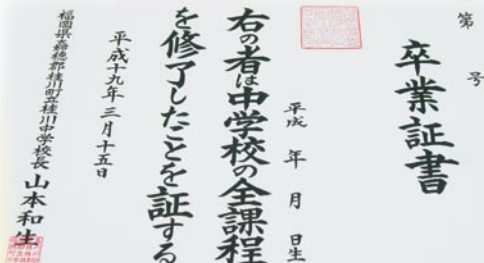 第　号
卒業証書
平成　年　月　日生
右の者は中学校の全課程
を修了したことを証する
平成十九年三月十五日
福岡県嘉穂郡桂川町立桂川中学校長　山本和生